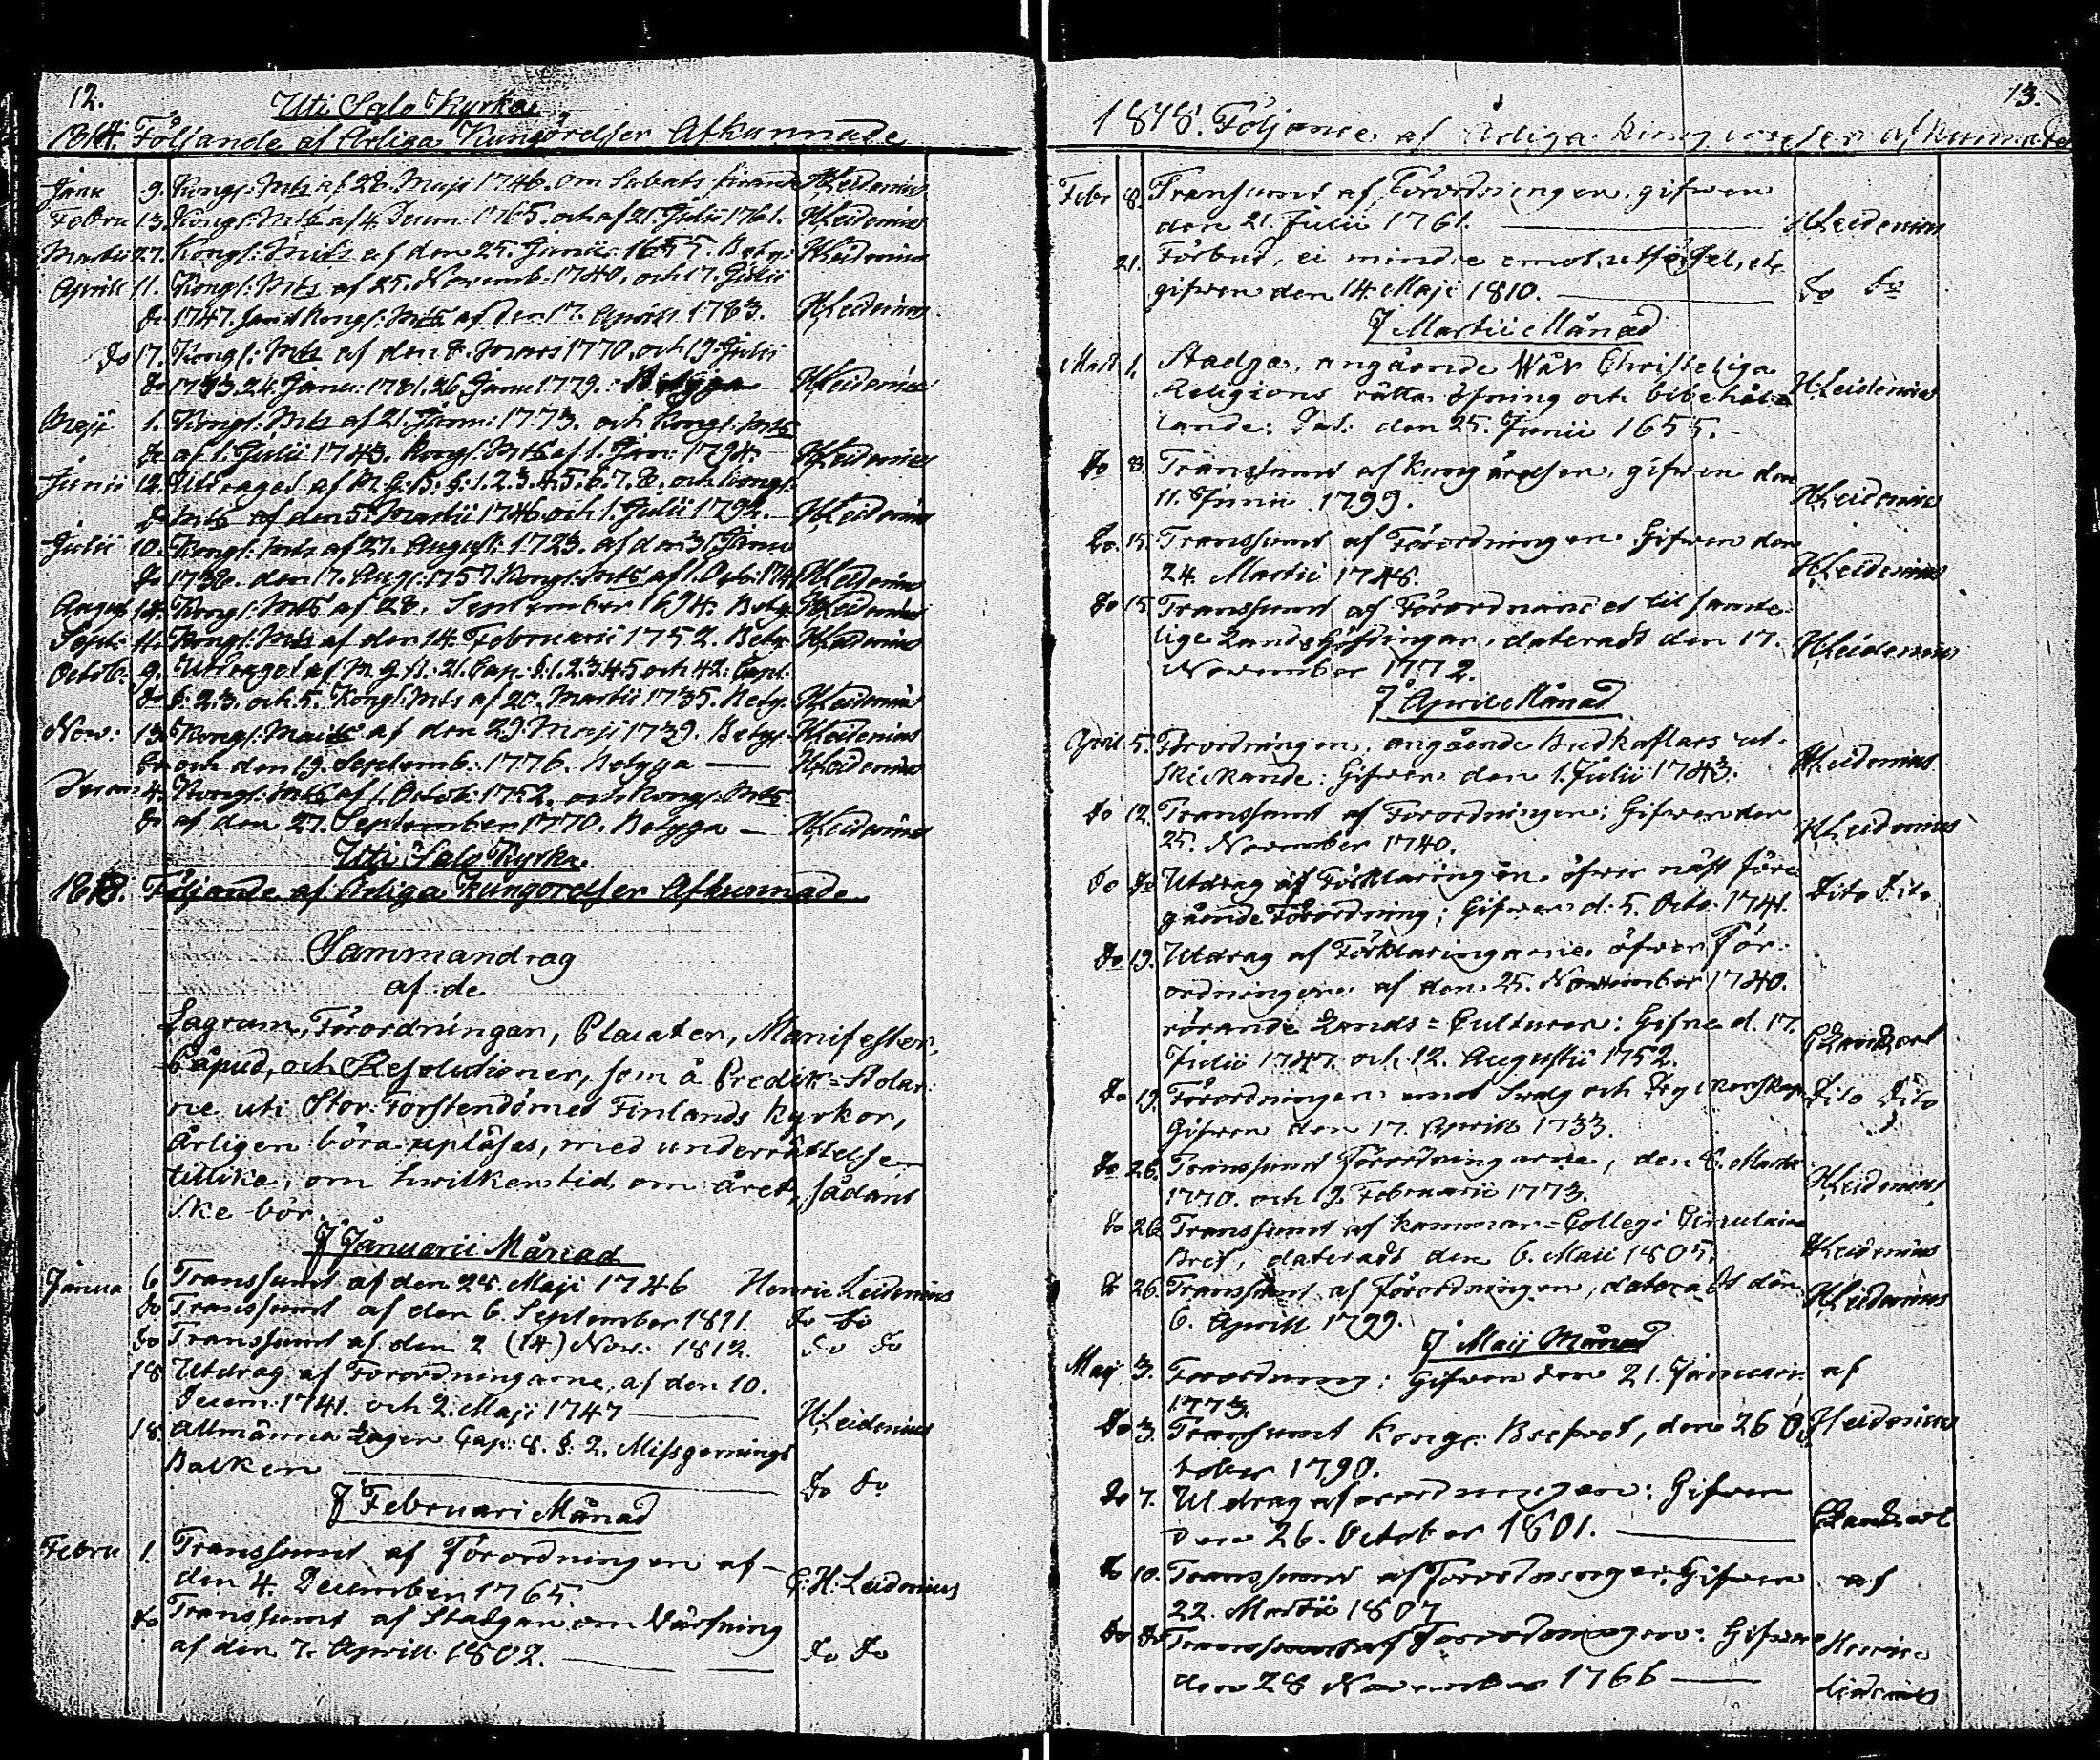 12.
Uti Salo Kyrka
1814. Följande af Årliga Kungörelser Afkunnade
Janu 9. Kongl: Mts af 28. Maji 1746. om Sabats firande HLeidenius
Febru 13. Kongl: Mts af 4. Decem: 1765. och af 21. Julii 1761. HLeidenius
Martii 27. Kongl: Mts af den 25. Junii 1655. Betyg: HLeidenius
Aprill 11. Kongl: Mts af 25. Novemb: 1740. och 17. Julii
do 1747. samt Kongl: Mts af den 17. Aprill 1783. HLeidenius
do 17. Kongl: Mts af den 8. Mars 1770. och 19 Julii
do 1733. 24. Janu: 1781. 26. Janu 1779. Betyga HLeidenius
Maji 1. Kongl: Mts af 21. Janu: 1773. och Kongl: Mts
do af 1. Julii 1743. Kongl: Mts af 1. Jan: 1794. HLeidenius
Junii 12. Utdraget af M. G. B: §: 1. 2. 3. 4. 5. 6. 7. 8. och Kongl:
do Mts af den 5. Martii 1746. och 1. Julii 1792. HLeidenius
Julii 10. Kongl: Mts af 27. August: 1723. af den 31 Janu
do 1738. den 17. Aug: 1757. Kongl: Mts af 1. Oct: 174 HLeidenius
Augus 14. Kongl: Mts af 28. September 1694. Betyg HLeidenius
Sept: 4. Kongl: Mts af den 14. Februarii 1752. Betyg HLeidenius
Octob: 9. Utdraget af M. G. B: 21. Cap: §. 1. 2. 3. 4. 5 och 42. Capt:
do §. 2. 3. och 5. Kongl: Mts af 20. Martii 1735. Betyg: HLeidenius
Nov: 13. Kongl: Maits af den 29. Maji 1739. Betyg: HLeidenius
do och den 19. Septemb: 1776. Betyga — HLeidenius
Decem 4. Kongl: Mts af 1. Octob: 1752. och Kongl: Mts
do af den 27. September 1770. Betyga — HLeidenius
Uti Salo Kyrka.
1818. Följande af Årliga Kungörelser Afkunnade.
Sammandrag
af de
Lagrum, Förordningar, Placater, Manifester,
Påbud, och Resolutioner, som å Predik=Stolar:
ne uti Stor-Förstendömet Finlands Kyrkor,
Årligen böra upläsas, med underrättelse
tillika, om hwilken tid om året, sådant
ske bör.
I Januarii Månad
Janua 6 Transsumt af den 28. Maji 1746 Henric Leidenius
do Transsumt af den 6. September 1811. do do
do Transsumt af den 2 (14.) Nov: 1812. do do
18. Utdrag af Förordningarne, af den 10.
Decem: 1741. och 2. Maji 1747 — HLeidenius
18. Allmänna Lagen Cap: 8. §: 2. Missgernings
Balken — do do
I Februari Månad
Febru 1. Transsumt af Förordningen af
den 4. December 1765. G: H: Leidenius
do Transsumt af Stadgan om Värfning
af den 7. Aprill 1802. — do do
13.
1818. Följande af Årliga Kungörelser afkunnade
Febr 8. Transumt af Förordningen, gifwen
den 21. Julii 1761. — HLeidenius
21. Förbud, ei mindre emot utförsel, etc
gifwen den 14. Maji 1810. — do do
I Martii Månad
Mart 1. Stadga, angående Wår Christeliga
Religions rätta öfning och bibehål=
lande: Dat: den 25. Junii 1655. HLeidenius
do 8. Transsumt af Kungörelsen, gifwen den
11. Junii 1799. HLeidenius
do. 15. Transsumt af Förordningen Gifwen den
24. Martii 1748. HLeidenius
do 15. Transsumt af Förordnandet til samte-
lige Landshöfdingar, dateradt den 17.
November 1772. HLeidenius
I April Månad
April 5. Förordningen, angående Budkaflars ut-
skickande: Gifwen den 1. Julii 1743. HLeidenius
do 12. Transsumt af Förordningen: Gifwen den
25. November 1740. HLeidenius
do do Utdrag af Förklaringen öfwer näst före
gående Förordning; Gifwen d: 5. Octo: 1741. Dito Dito
do 19. Utdrag af Förklaringarne öfwer För-
ordningen af den 25. November 1740.
rörande Lands=Culturen: Gifne d. 17.
Julii 1747. och 12. Augustii 1752.
do 19. Förordningen emot Swalg och Dryckenskap
Gifwen den 17. Aprill 1733. Dito Dito
do 26. Transsumt Förordningarne, den 8. Martii
1770. och 19. Februarii 1773. HLeidenius
do 26 Transsumt af Kammar=Collegi Circulaire
Bref, dateradt den 6. Maii 1805. HLeidenius
do 26. Transsumt af förordningen, dateradt den
6. Aprill 1799. HLeidenius
I Maij Månad
Maij 3. Förordning: Gifwen den 21. Januari af
1773.
do 3. Transsumt Kongl: Brefwet, den 26 Oc HLeidenius
tober 1790.
do 7. Utdrag af förordningen: Gifwen
den 26. October 1801. —
do 10. Transsumt af Förordningen: Gifwen af
22. Martii 1807
do do Transsumt af Förordningen: Gifwen Henric
den 28 November 1766 — Leidenius